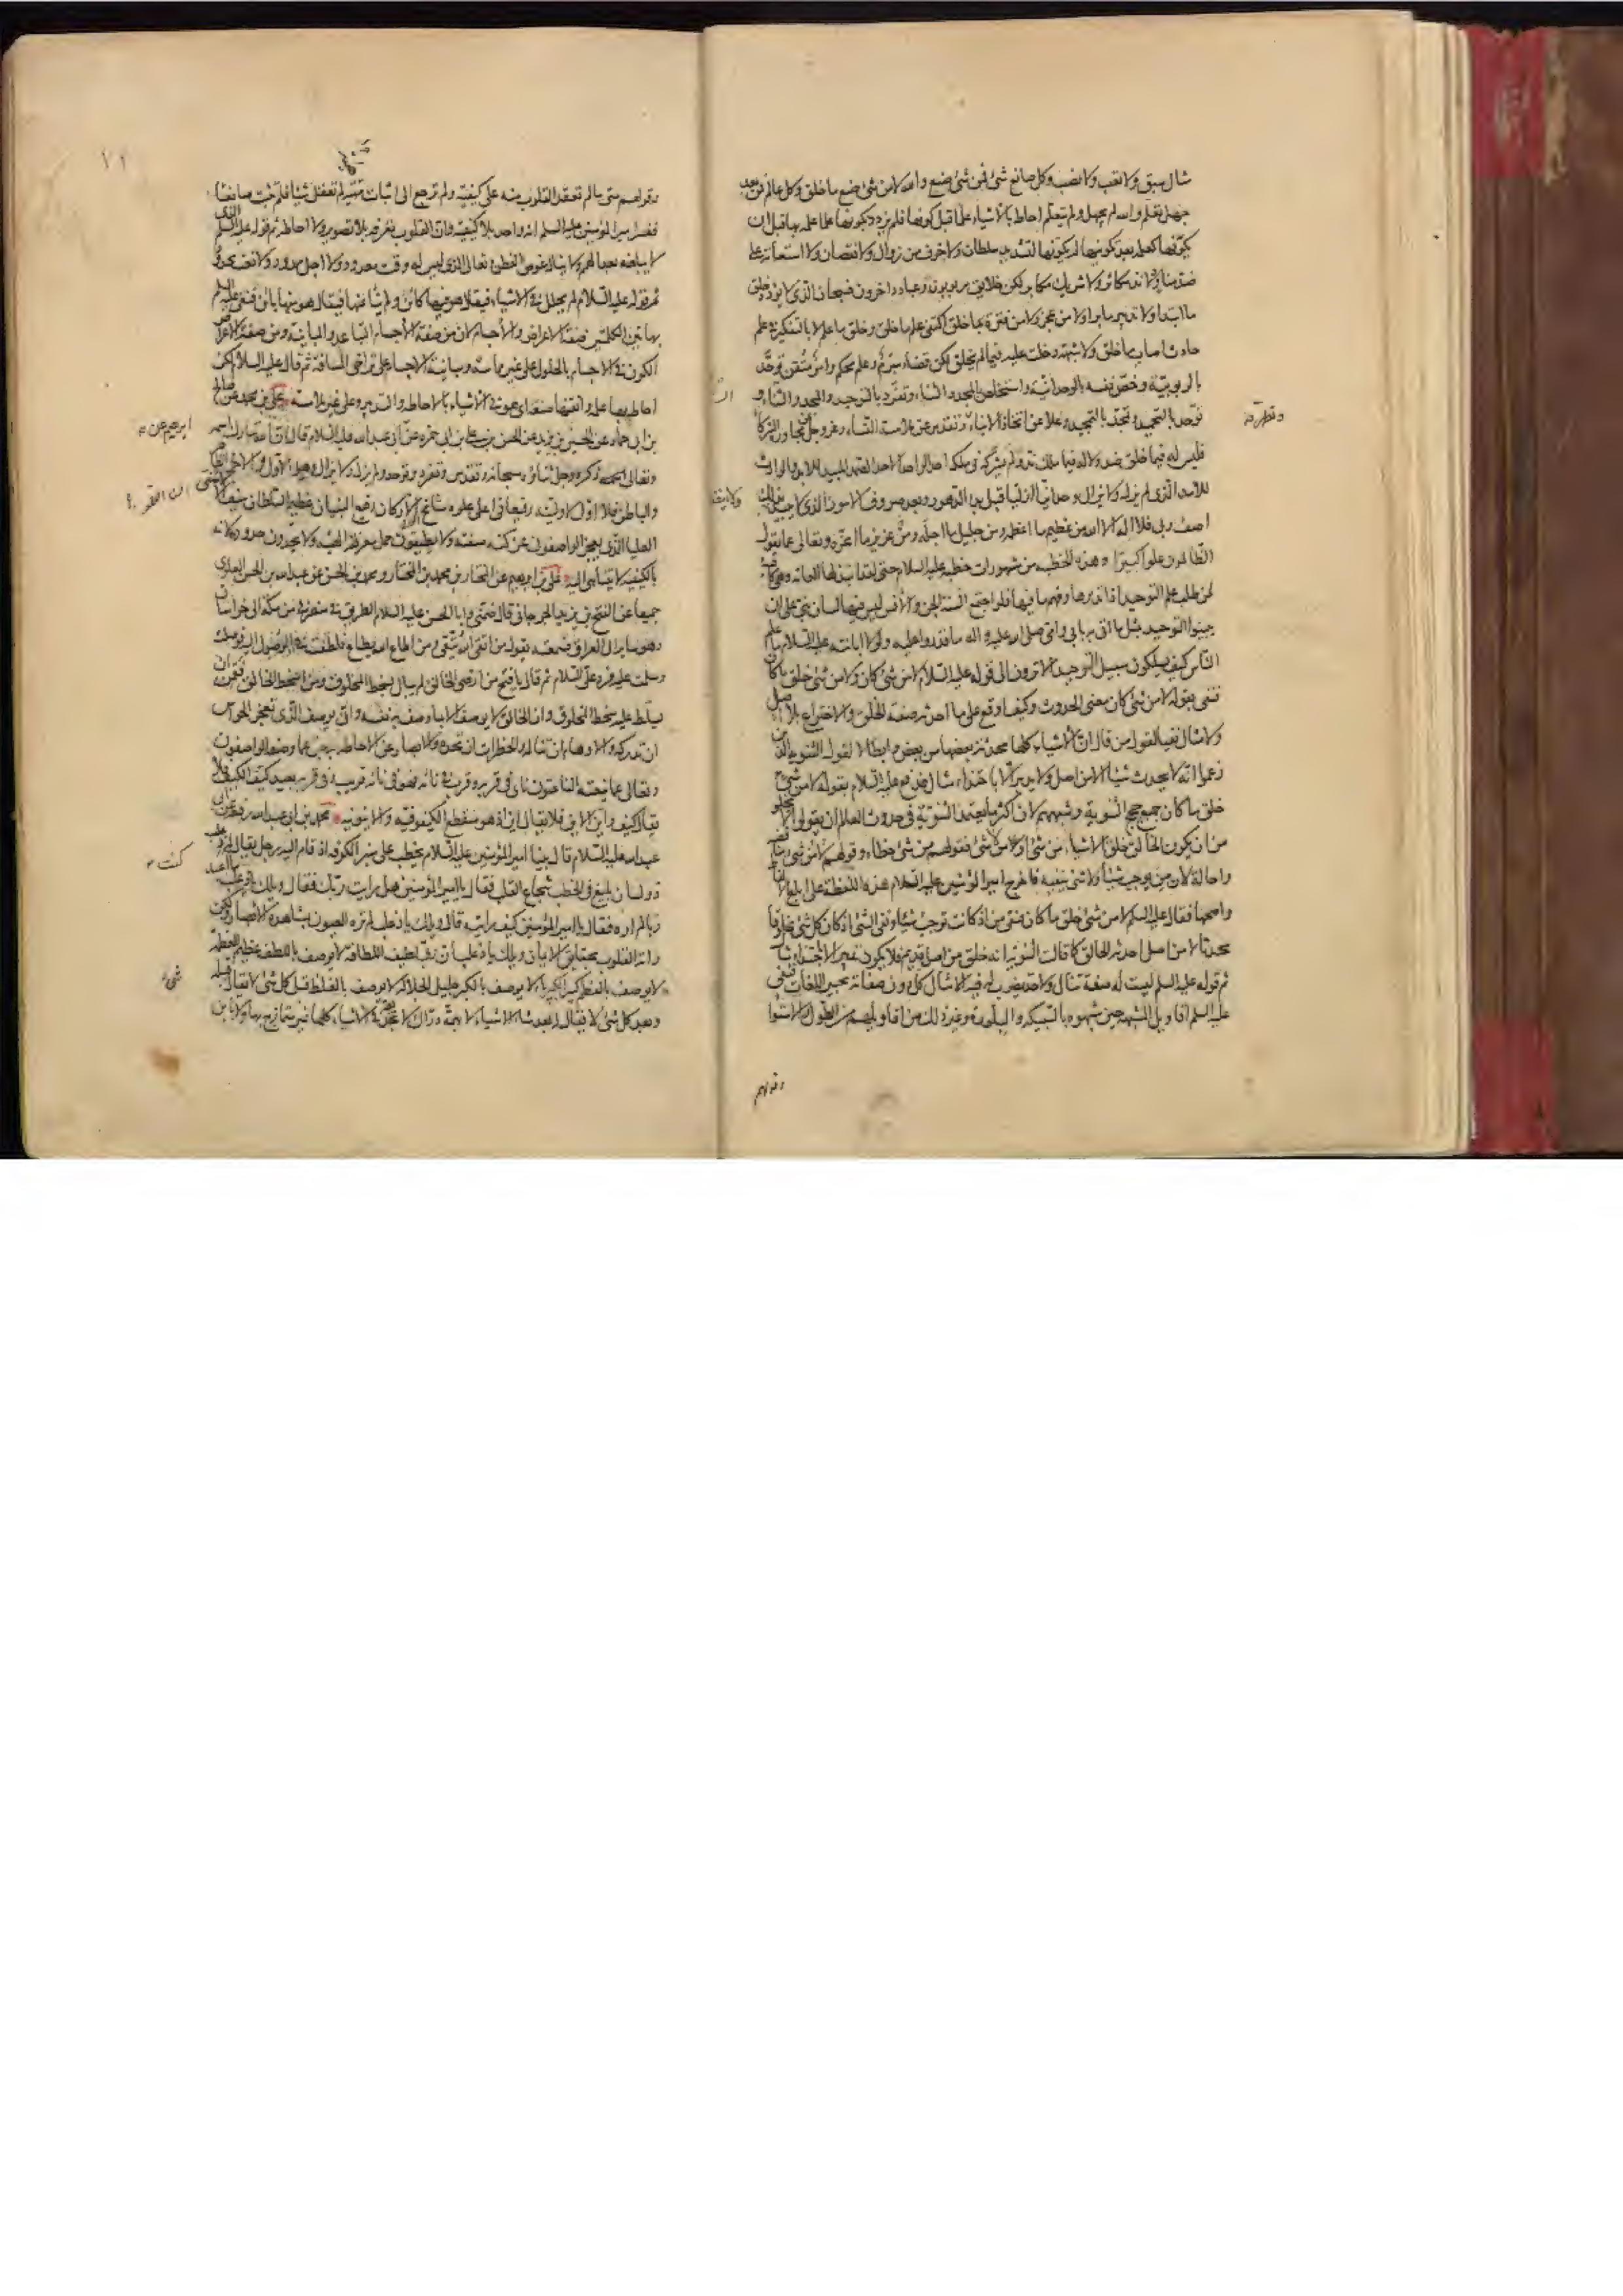 مثال سبق ولا تعب ولا نصب وكل صانع شئ فمن شئ صنع والله لا من شئ صنع ما خلق وكل عالم فمن بعد
جهل تعلم والله لم يجهل ولم يتعلم احاط بالاشياء علما قبل كونها فلم يزدد بكونها علما علمه بها قبل ان
يكونها كعلمه بعد تكوينها لم يكونها لتشديد سلطان ولا خوف من زوال ولا نقصان ولا استعانة على
ضد مناو ولا ند مكاثر ولا شريك مكابر لكن خلائق مربوبون وعباد داخرون فسبحان الذي لا يؤده خلق
ما ابتدا ولا تدبير ما برا ولا من عجز ولا من فترة بما خلق اكتفى علم ما خلق وخلق ما علم لا بالتفكير في علم
حادث اصاب ما خلق ولا شبهة دخلت عليه فيما لم يخلق لكن قضاء مبرم وعلم محكم وامر متقن توحد
بالربوبية وخص نفسه بالوحدانية واستخلص المجد والثناء وتفرد بالتوحيد والمجد والثناء و
توحد بالتحميد وتمجد بالتمجيد وعلا عن اتخاذ الابناء وتطهر وتقدس عن ملامسة النساء وعز وجل عن مجاورة الشركاء
فليس له فيما خلق ضد ولا له فيما ملك ند ولم يشركه في ملكه احد الواحد الاحد الصمد المبيد للابد والوارث
للامد الذي لم يزل ولا يزال وحدانيا ازليا قبل بدء الدهور وبعد صروف الامور الذي لا يبيد بذلك
اصف ربي فلا اله الا الله من عظيم ما اعظمه ومن جليل ما اجله ومن عزيز ما اعزه وتعالى عما يقول
الظالمون علوا كبيرا وهذه الخطبة من مشهورات خطبه عليه السلام حتى لقد ابتذلها العامة وهي كافية
لمن طلب علم التوحيد اذا تدبرها وفهم ما فيها فلو اجتمع السنة الجن والانس ليس فيها لسان نبي على ان
يبينوا التوحيد بمثل ما اتى به بابي وامي صلى الله عليه واله ما قدروا عليه ولولا ابانته عليه السلام ما علم
الناس كيف يسلكون سبيل التوحيد الا ترون الى قوله عليه السلام لا من شئ كان ولا من شئ خلق ما كان
فنفى بقوله لا من شئ كان معنى الحدوث وكيف اوقع على ما احدثه صفة الخلق والاختراع بلا اصل
ولا مثال نفيا لقول من قال ان الاشياء كلها محدثة بعضها من بعض وابطالا لقول الثنوية الذين
زعموا انه لا يحدث شيئا الا من اصل ولا يدبر الا باحتذاء مثال فدفع عليه السلام بقوله لا من شئ
خلق ما كان جميع حجج الثنوية وشبههم لان اكثر ما يعتمد الثنوية في حدوث العالم ان يقولوا لا يخلو
من ان يكون الخالق خلق الاشياء من شئ او من لا شئ فقولهم من شئ خطاء وقولهم من لا شئ مناقضة
واحالة لان من يوجب شيئا ولا شئ ينفيه فاخرج امير المؤمنين عليه السلام هذه اللفظة على ابلغ الالفاظ
واصحها فقال عليه السلم لا من شئ خلق ما كان فنفى من اذ كانت توجب شيئا ونفى الشئ اذ كان كل شئ مخلوقا
محدثا لا من اصل احدثه الخالق كما قالت الثنوية انه خلق من اصل قديم فلا يكون تدبير الا باحتذاء مثال
ثم قوله عليه السلم ليست له صفة تنال ولا حد يضرب له فيه الامثال كل دون صفاته تحبير اللغات فنفى
عليه السلم اقاويل المشبهة حين شبهوه بالسبيكة والبلورة وغير ذلك من اقاويلهم من الطول والاستوا
وقولهم
وقولهم متى ما لم تعقد القلوب منه على كيفية ولم ترجع الى اثبات هيئة لم تعقل شيئا فلم تثبت صانعا
ففسر امير المؤمنين عليه السلم انه واحد بلا كيفية وان القلوب تعرفه بلا تصوير ولا احاطة ثم قوله عليه السلم الذي
لا يبلغه بعد الهمم ولا يناله غوص الفطن وتعالى الذي ليس له وقت معدود ولا اجل ممدود ولا نعت محدود
ثم قوله عليه السلام لم يحلل في الاشياء فيقال هو فيها كائن ولم ينا عنها فيقال هو منها بائن فنفى عليه السلم
بهاتين الكلمتين صفة الاعراض والاجسام لان من صفة الاجسام التباعد والمباينة ومن صفة الاعراض
الكون في الاجسام بالحلول على غير مماسة ومباينة الاجسام على تراخي المسافة ثم قال عليه السلام لكن
احاط بها علمه واتقنها صنعه اي هو في الاشياء بالاحاطة والتدبير وعلى غير ملامسة علي بن محمد عن صالح
بن ابي حماد عن الحسين بن يزيد عن الحسن بن علي بن ابي حمزه عن ابي عبد الله عليه السلام قال ان الله تبارك اسمه
ابرهيم عن
وتعالى ذكره وجل ثناؤه سبحانه وتقدس وتفرد وتوحد ولم يزل ولا يزال وهو الاول والاخر والظاهر
والباطن فلا اول لاوليته رفيعا في اعلى علوه شامخ الاركان رفيع البنيان عظيم السلطان منيف الالاء سني
العلياء الذي يعجز الواصفون عن كنه صفته ولا يطيقون حمل معرفة الهيته ولا يحدون حدوده لانه
بالكيفية لا يتناهى اليه علي بن ابرهيم عن المختار بن محمد بن المختار ومحمد بن الحسن عن عبد الله بن الحسن العلوي
جميعا عن الفتح بن يزيد الجرجاني قال ضمني وابا الحسن عليه السلام الطريق في منصرفي من مكة الى خراسان
وهو سائر الى العراق فسمعته يقول من اتقى الله يتقى ومن اطاع الله يطاع فتلطفت في الوصول اليه فوصلت
وسلمت عليه فرد على السلام ثم قال يا فتح من ارضى الخالق لم يبال بسخط المخلوق ومن اسخط الخالق فقمن ان
يسلط عليه سخط المخلوق وان الخالق لا يوصف الا بما وصف به نفسه وانى يوصف الذي تعجز الحواس
ان تدركه والاوهام ان تناله والخطرات ان تحده والابصار عن الاحاطة به جل عما وصفه الواصفون
وتعالى عما ينعته الناعتون ناى في قربه وقرب في نائه فهو في نائه قريب وفي قربه بعيد كيف الكيف فلا
يقال كيف واين الاين فلا يقال اين اذ هو منقطع الكيفوفية والاينونية محمد بن ابي عبد الله رفعه عن ابي
عبد الله عليه السلام قال بينا امير المؤمنين عليه السلام يخطب على منبر الكوفه اذ قام اليه رجل يقال له ذعلب
كنت
ذو لسان بليغ في الخطب شجاع القلب فقال يا امير المؤمنين هل رايت ربك فقال ويلك يا ذعلب ما اعبد
ربا لم اره فقال يا امير المؤمنين كيف رايته قال ويلك يا ذعلب لم تره العيون بمشاهدة الابصار ولكن
راته القلوب بحقايق الايمان ويلك يا ذعلب ان ربي لطيف اللطافة لا يوصف باللطف عظيم العظمة
لا يوصف بالعظم كبير الكبرياء لا يوصف بالكبر جليل الجلالة لا يوصف بالغلظ قبل كل شئ لا يقال شئ قبله
شئ
وبعد كل شئ لا يقال له بعد شاء الاشياء لا بهمة دراك لا بخديعة في الاشياء كلها غير متمازج بها ولا باين